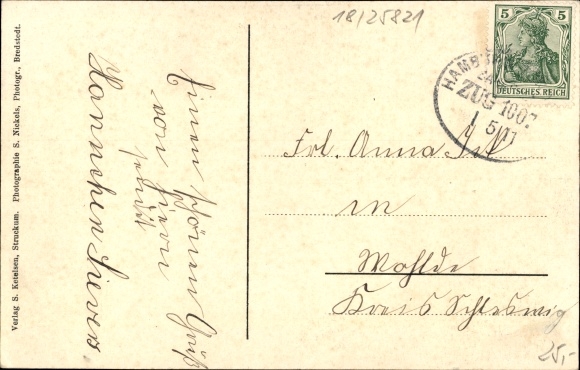 Verlag S. Ketelsen, Struckum. Photographie S. Nickels, Photogr., Bredstedt.
Einen schönen Gruß
von hier
sendet
Hannchen Sievers.
18/25821
5 5
DEUTSCHES REICH
HAMB
ZUG 1007
5/11
Frl. Anna
in
Wohlde
Kreis Schleswig
25,-